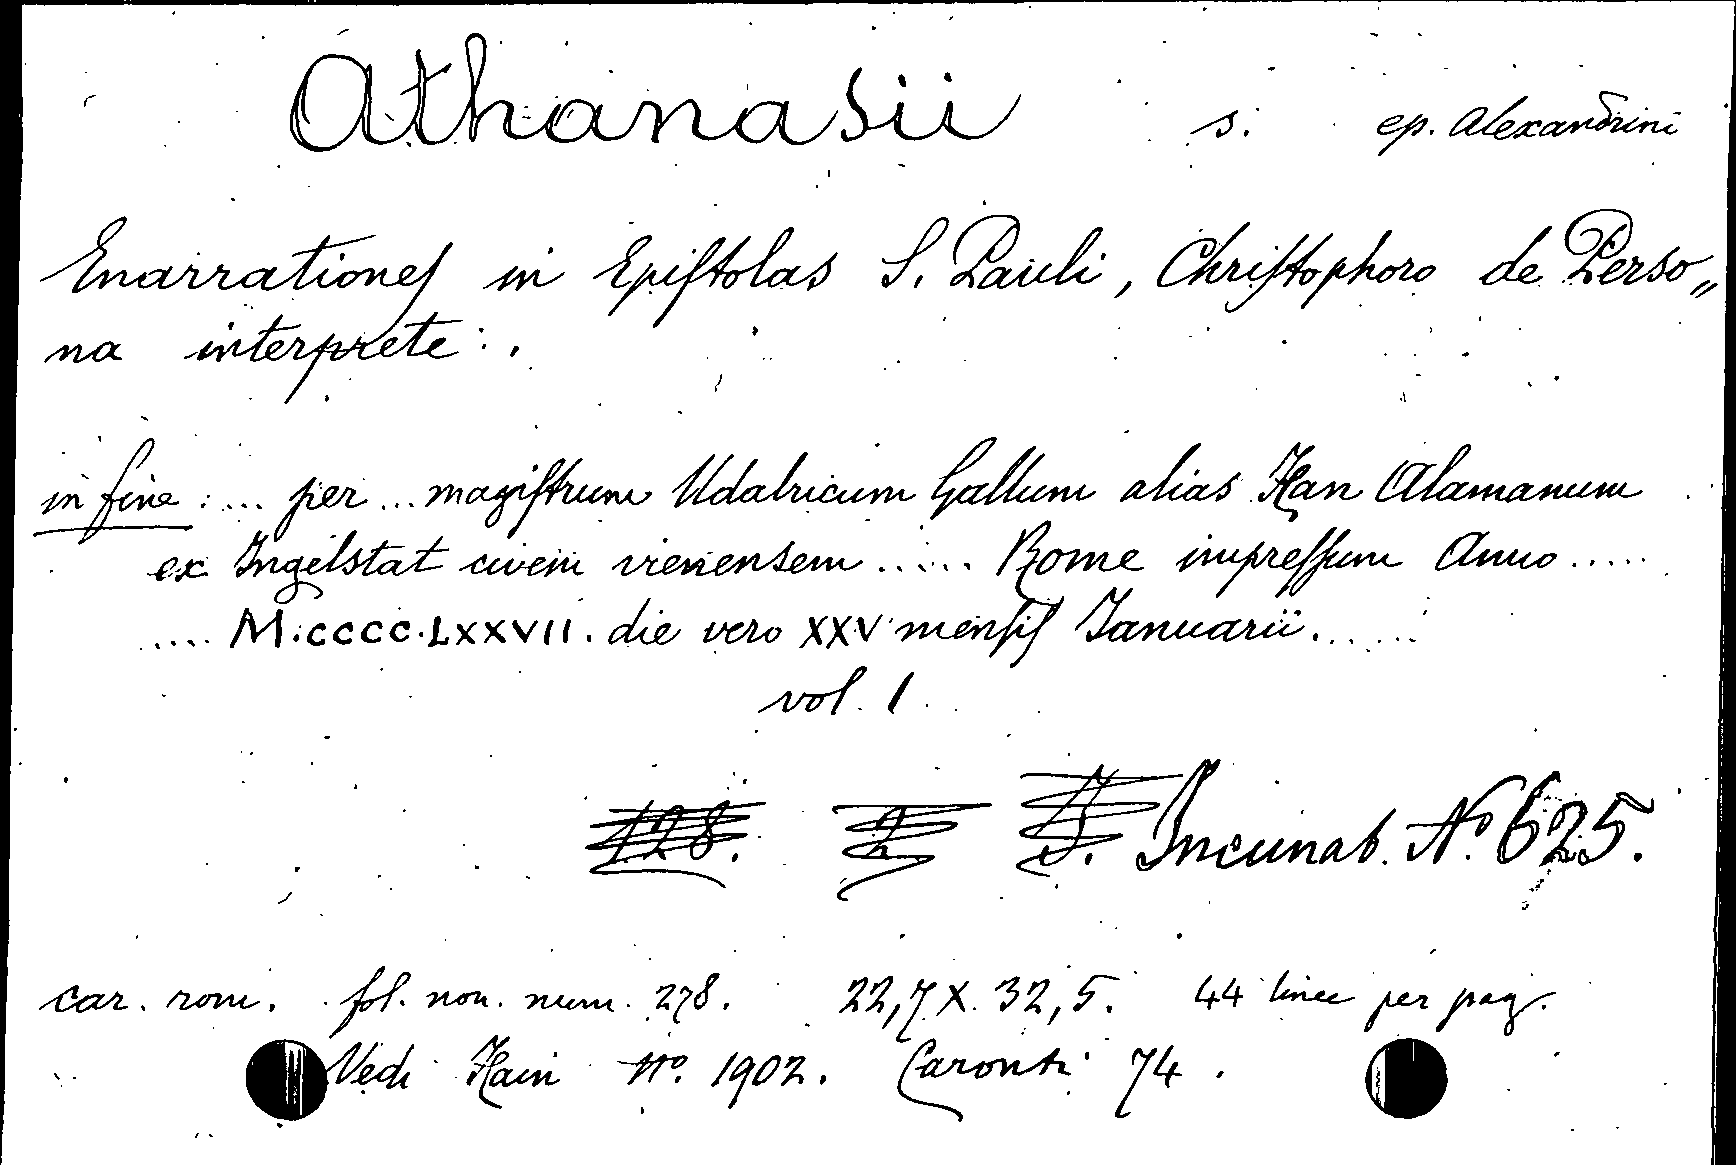 Athanasii s. ep. Alexandrini
Enarrationes in Epistolas S. Pauli, Christophoro de Perso„
na interprete:.
in fine: ... per ... magistrum Udalricum Gallum alias Han Alamanum
ex Ingelstat civem vienensem ...... Rome impressum Anno .....
.... M.CCCC.LXXVII. die vero XXV mensis Januarii......
vol. 1.
128. 2 J. Incunab. No 625.
car. rom. fol. non. num. 278. 22,7 X 32,5. 44 linee per pag.
Vedi Hain No. 1902. Caronti 74.